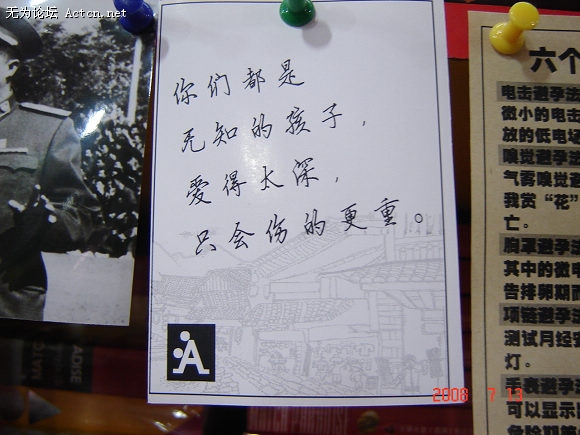 无为论坛 Actcn.net
你们都是
无知的孩子,
愛得太深,
只会伤的更重。
A
2008 7 13
六个
电击避孕法
微小的电击
放的低电
嗅觉避孕法
气雾嗅觉
我贡“花”
亡。
胸罩避孕法
其中的微
告排卵期
项链避孕法
测试月经
灯。
手表避孕法
可以显示
危险期